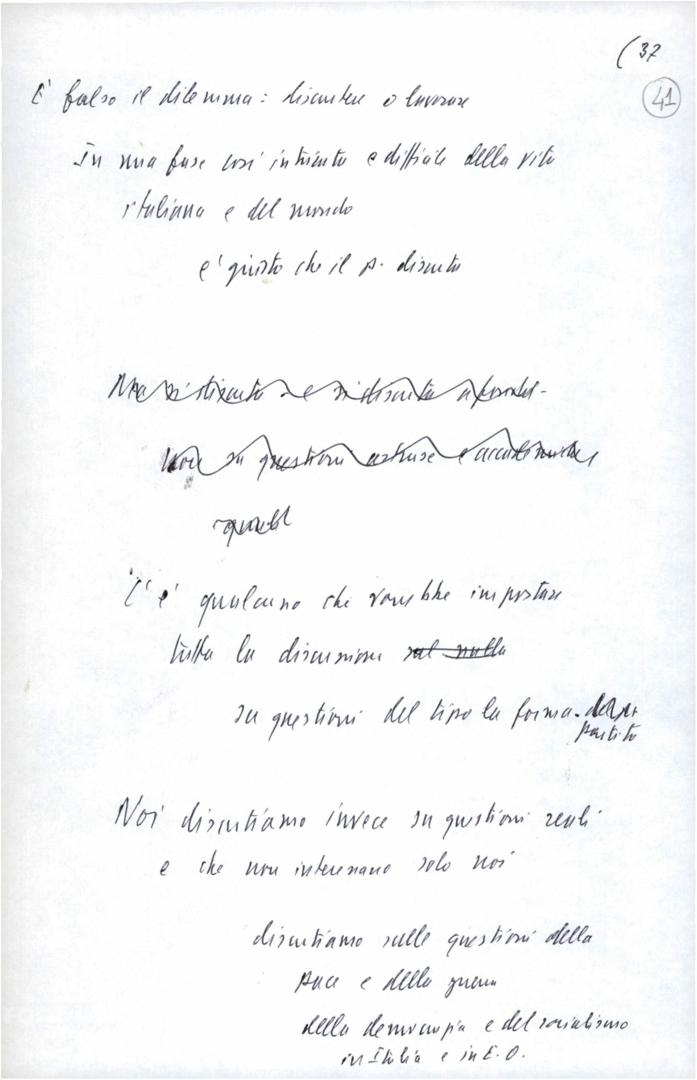 (37
41
E' falso il dilemma: discutere o lavorare
In una fase così intricata e difficile della vita
italiana e del mondo
e' giusto che il p. discuta
Ma si discuta e si discuta a fondo -
Non su questioni astruse e accademiche
quali
C'è qualcuno che vorrebbe impostare
tutta la discussione sul nulla
su questioni del tipo la forma-
partito
Noi discutiamo invece su questioni reali
e che non interessano solo noi
discutiamo sulle questioni della
pace e della guerra
della democrazia e del socialismo
in Italia e in E.O.